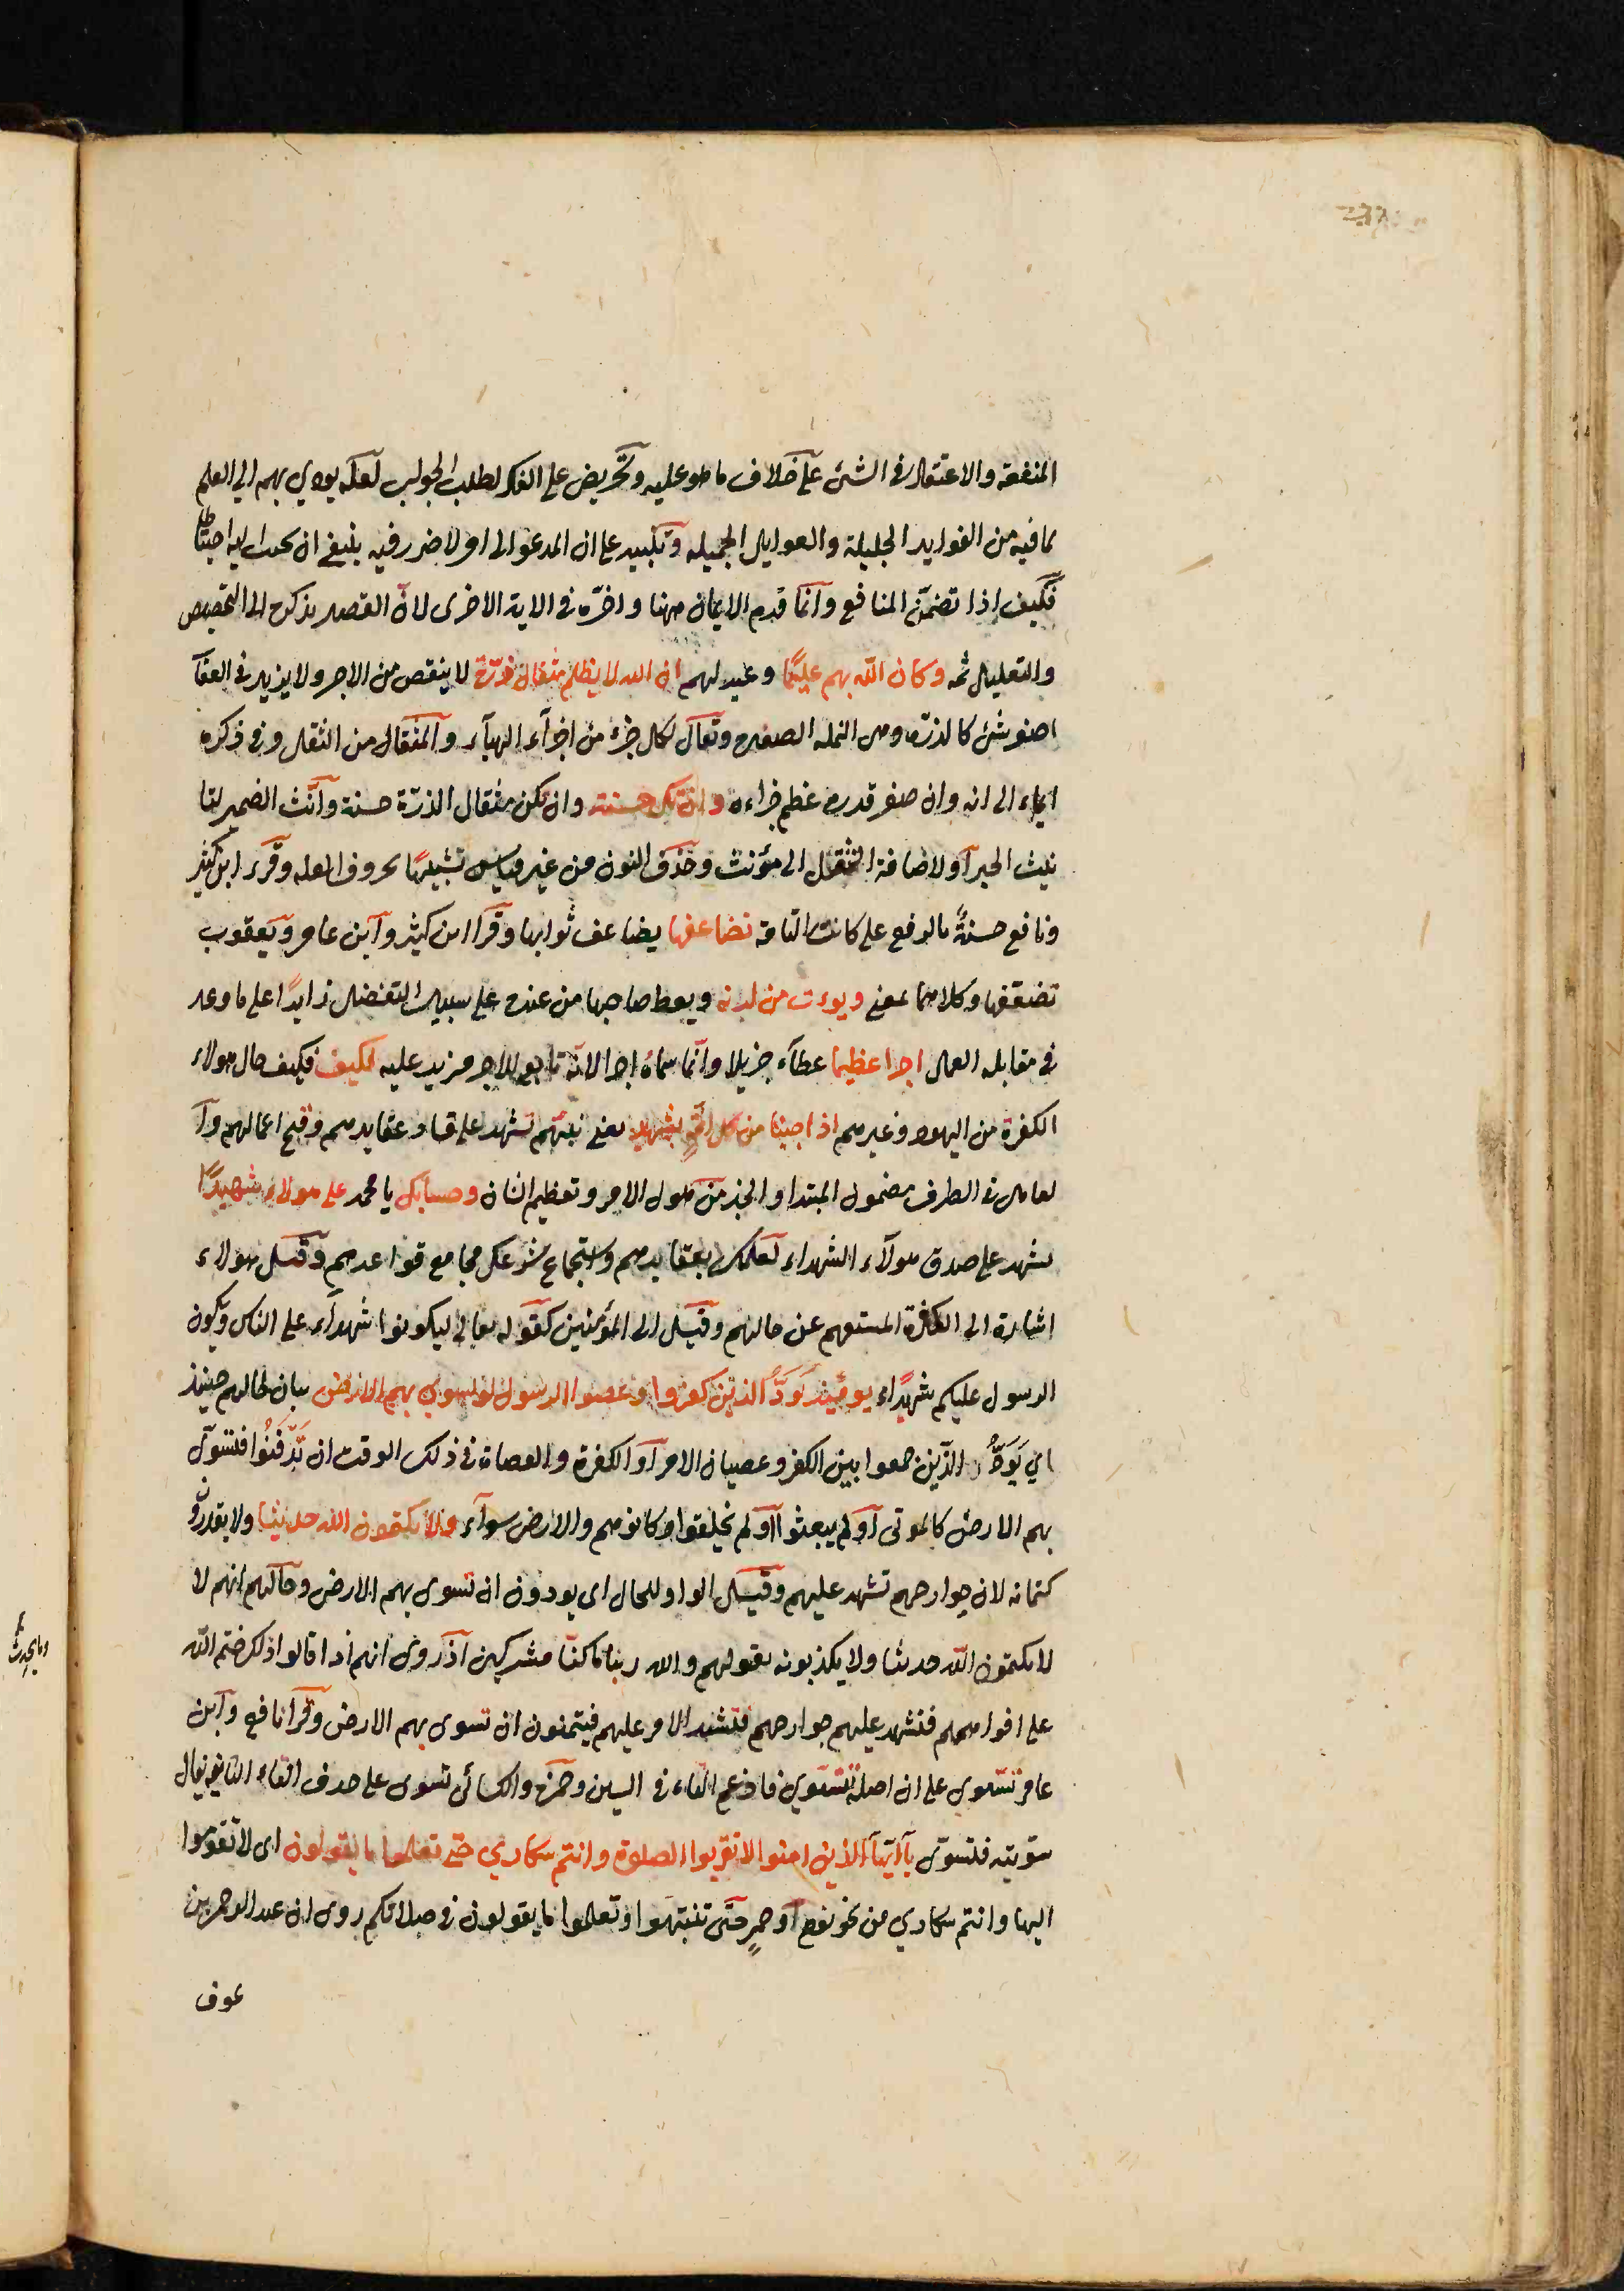 المنفعة والاعتقاد في الشئ على خلاف ما هو عليه وتحريض على الفكر لطلب الجواب لعله يودي بهم الي العلم
بما فيه من الفوايد الجليلة والعوايد الجميله وتنبيه على ان المدعو الى امر لا ضرر فيه ينبغي ان يجيب اليه احتياطا
فكيف اذا تضمن المنافع وانما قدم الايمان ههنا واخره في الاية الاخرى لان القصد بذكره الى التخصيص
والتعليل ثمه وكان الله بهم عليمًا وعيد لهم ان الله لا يظلم مثقال ذرّة لا ينقص من الاجر ولا يزيد في العقا
اصغر شئ كالذرة وهى النمله الصغيره وتقال لكل جزء من اجزاء الهبآء والمثقال من الثقل وفي ذكره
ايماء الى انه وان صغر قدره عظم جزاءه وان تك حسنة وان تكن مثقال الذرّة حسنة وانّث الضمير لتا
نيث الخبر او لاضافة المثقال الى مؤنث وحذف النون من غير قياس تشبيهًا بحروف العله وقرء ابن كثير
ونافع حسنةٌ بالرفع على كانت التامة تضاعفها يضاعف ثوابها وقرا ابن كثير وابن عامر ويعقوب
تضعّفها وكلاهما بمعنى ويوءت من لدنه ويعط صاحبها من عنده على سبيل التفضل زايدًا على ما وعد
في مقابله العمل اجرا عظيما عطآء جزيلا وانّما سماه اجرا لانّه تابع للاجر مزيد عليه فكيف فكيف حال هولاء
الكفرة من اليهود وغيرهم اذا جينا من كل امّةٍ بشهيد يعني نبيّهم تشهد على فساد عقايدهم وقبح اعمالهم وا
لعامل في الظرف مضمون المبتدا والخبر من هول الامر وتعظيم الشان وجينا بك يا محمد على هولاء شهيدًا
تشهد على صدق هولآء الشهداء لعلمك بعقايدهم واستجماع شرعك مجامع قواعدهم وقيل هولاء
اشارة الى الكفرة المستفهم عن حالهم وقيل الى المؤمنين كقوله تعالى ليكونوا شهدآء على الناس ويكون
الرسول عليكم شهيدًا يومئذ يَوَدُّ الذين كفروا وعصوا الرسول لو تسوي بهم الارض بيان لحالهم حينئذ
اي يَوَدُّ الذين جمعوا بين الكفر وعصيان الامر او الكفرة والعصاة في ذلك الوقت ان يدفنُوا فتسوّى
بهم الارض كالموتى او لم يبعثوا او لم يخلقوا وكانوا هم والارض سوآء ولا يكتمون الله حديثا ولا يقدرون
كتمانه لان جوارحهم تشهد عليهم وقيل الواو للحال اى يودون ان تسوى بهم الارض وحالهم انهم لا
لا يكتمون الله حديثا ولا يكذبونه بقولهم والله ربنا ما كنّا مشركين اذ روى انهم اذا قالوا ذلك ختم الله
على افواههم فتشهد عليهم جوارحهم فتشتد الامر عليهم فيتمنون ان تسوى بهم الارض وقرا نافع وابن
عامر تسّوى على ان اصله تتسّوي فادغم التاء في السين وحمزه والكسائى تسوى على حذف التاء الثانية يقال
سوّيته فتسوّى يآ ايّهآ الذين امنوا لا تقربوا الصلوة وانتم سكاري حتى تعلموا ما تقولون اى لا تقوموا
اليها وانتم سكاري من نحو نوم او خمرٍ حتّى تنتبهوا وتعلموا ما يقولون في صلاتكم روى ان عبد الرحمن بن
عوف